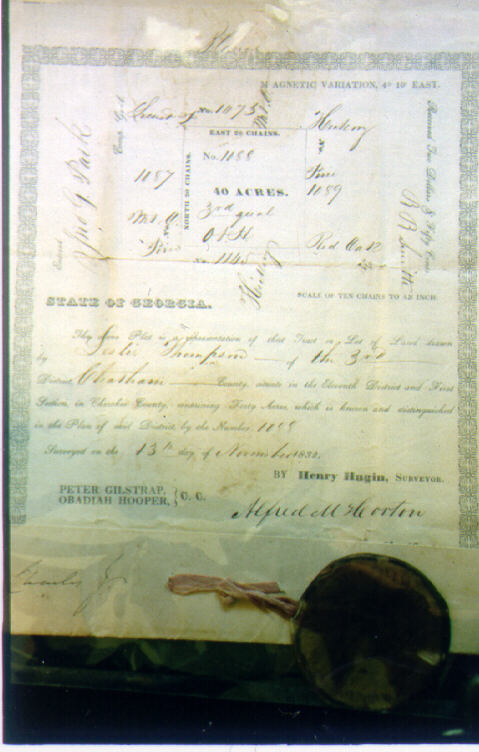 MAGNETIC VARIATION, 4° 10' EAST.
No. 1073
EAST 20 CHAINS.
Hickory
No. 1088
1087
NORTH 20 CHAINS.
40 ACRES.
Pine
1089
3rd qual
O & H
Pine
Red Oak
No.
Jno G Park
Received Two Dollars & Fifty Cents
R R Smith
Hickory
SCALE OF TEN CHAINS TO AN INCH
STATE OF GEORGIA.
The above Plat is a representation of that Tract or Lot of Land drawn
by Leslie Thompson of the 3rd
District, Chatham County, situate in the Eleventh District and First
Section, in Cherokee County, containing Forty Acres, which is known and distinguished
in the Plan of said District, by the Number 1088
Surveyed on the 13th day of November 1832.
BY Henry Hagin, SURVEYOR.
PETER GILSTRAP,
OBADIAH HOOPER, } C. C.
Alfred M Horton
Charles J